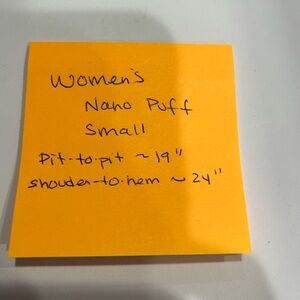 Women's
Nano Puff
Small
Pit-to-pit ~ 19"
shouder-to-hem ~ 24"